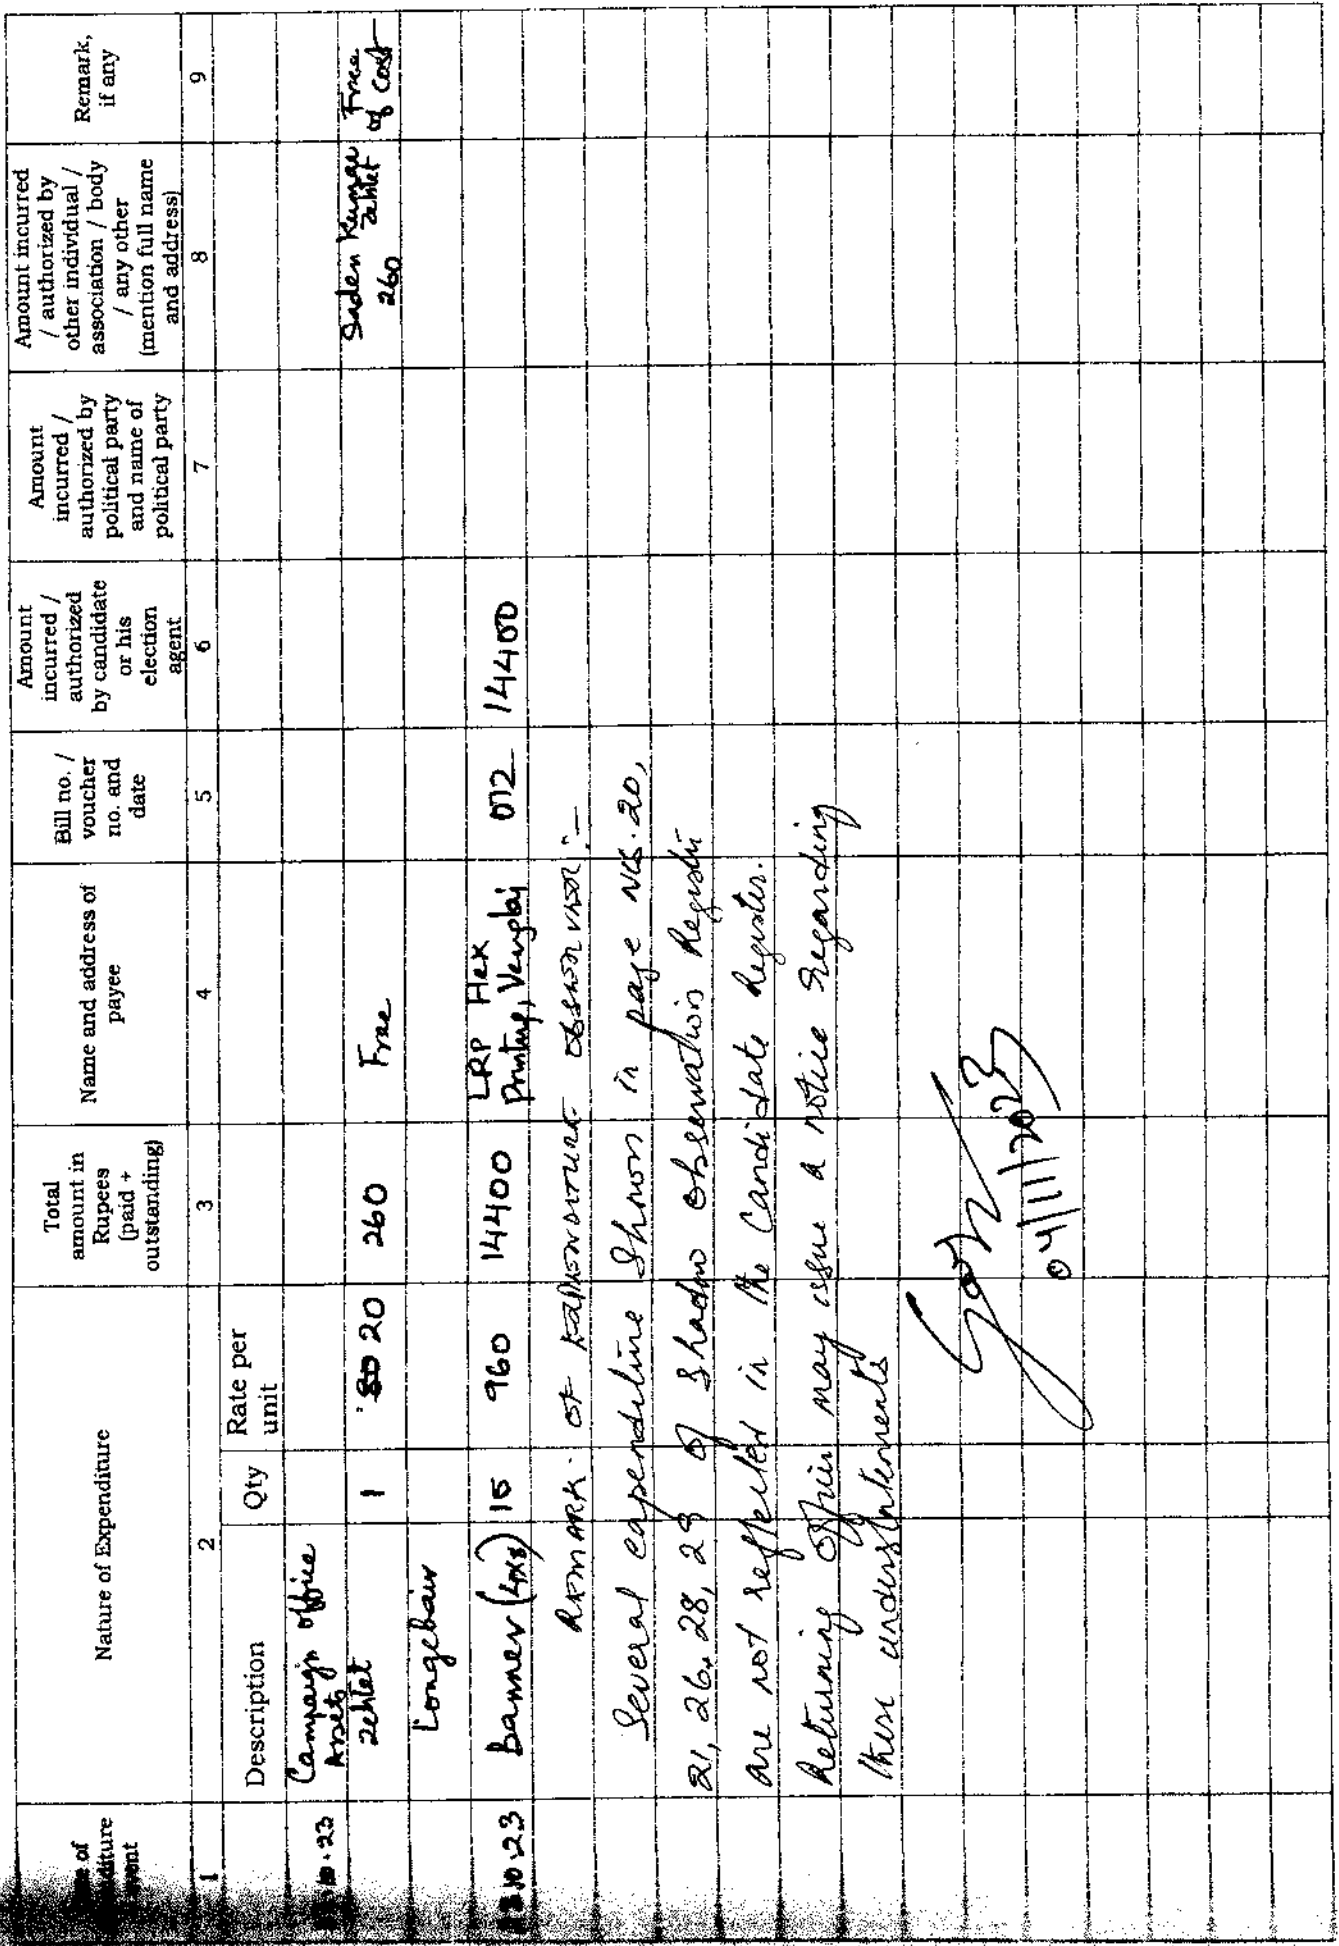 Nature of Expenditure
Total
amount in
Rupees
(paid +
outstanding)
Name and address of
payee
Bill no. /
voucher
no. and
date
Amount
incurred /
authorized
by candidate
or his
election
agent
Amount
incurred /
authorized by
political party
and name of
political party
Amount incurred
/ authorized by
other individual /
association / body
/ any other
(mention full name
and address)
Remark,
if any
1 2 3 4 5 6 7 8 9
Description Qty Rate per
unit
Campaign office
Assets
zehtet 1 20 260 Free Kumar Free
260 of cost
.10.23 Banner 15 960 14400 LRP Flex 072 14400
Printing,
REMARK. OF EXPENDITURE OBSERVER :-
Several expenditure shown in page nos. 20,
21, 26, 28, 29 of Shadow Observation Register
are not reflected in the Candidate Register.
Returning Officer may issue a notice regarding
these understatements
04/11/2023